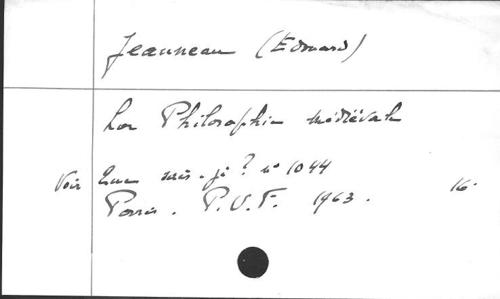 Jeauneau (Edouard)
La Philosophie médiévale
Voir Que sais-je ? n° 1044
Paris. P.U.F. 1963. 16°